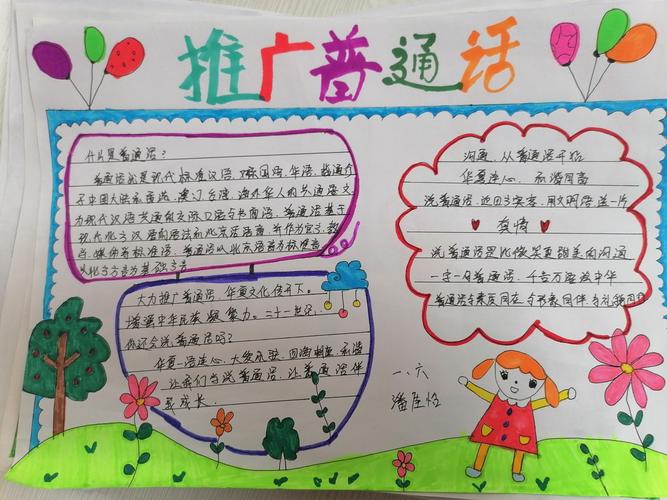 推广普通话
什么是普通话?
普通话就是现代标准汉语,又称国语、华语,指通行
于中国大陆和香港、澳门、台湾、海外华人的共通语文
为现代汉语共通的交际口语与书面语。普通话基于
现代北方汉语的语法和北京话语音,并作为官方、教
学、媒体等标准语。普通话以北京语音为标准音
以北方方言为基础方言
大力推广普通话,华夏文化传天下。
增强中华民族凝聚力。二十一世纪,
你还会说普通话吗?
华夏一语连心,
让我们与说普通话,让普通话伴
我成长.
沟通,从普通话开始
华夏连心,和谐同音
说普通话,迎四方宾客,用文明语送一片
真情
说普通话是比微笑更甜美的沟通
一字一句普通话,千言万语爱中华
一、六